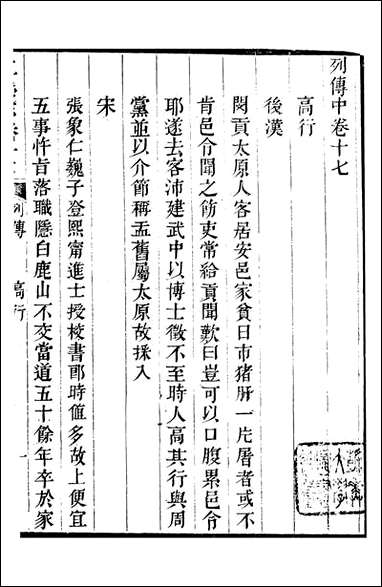 列傳中卷十七
高行
後漢
閔貢太原人客居安邑家貧日市猪肝一片屠者或不
肯邑令聞之飭吏常給貢聞歎曰豈可以口腹累邑令
耶遂去客沛建武中以博士徵不至時人高其行與周
黨並以介節稱盂舊屬太原故採入
宋
張象仁巍子登熙甯進士授校書郎時値多故上便宜
五事忤旨落職隱白鹿山不交當道五十餘年卒於家
列傳
高行
一